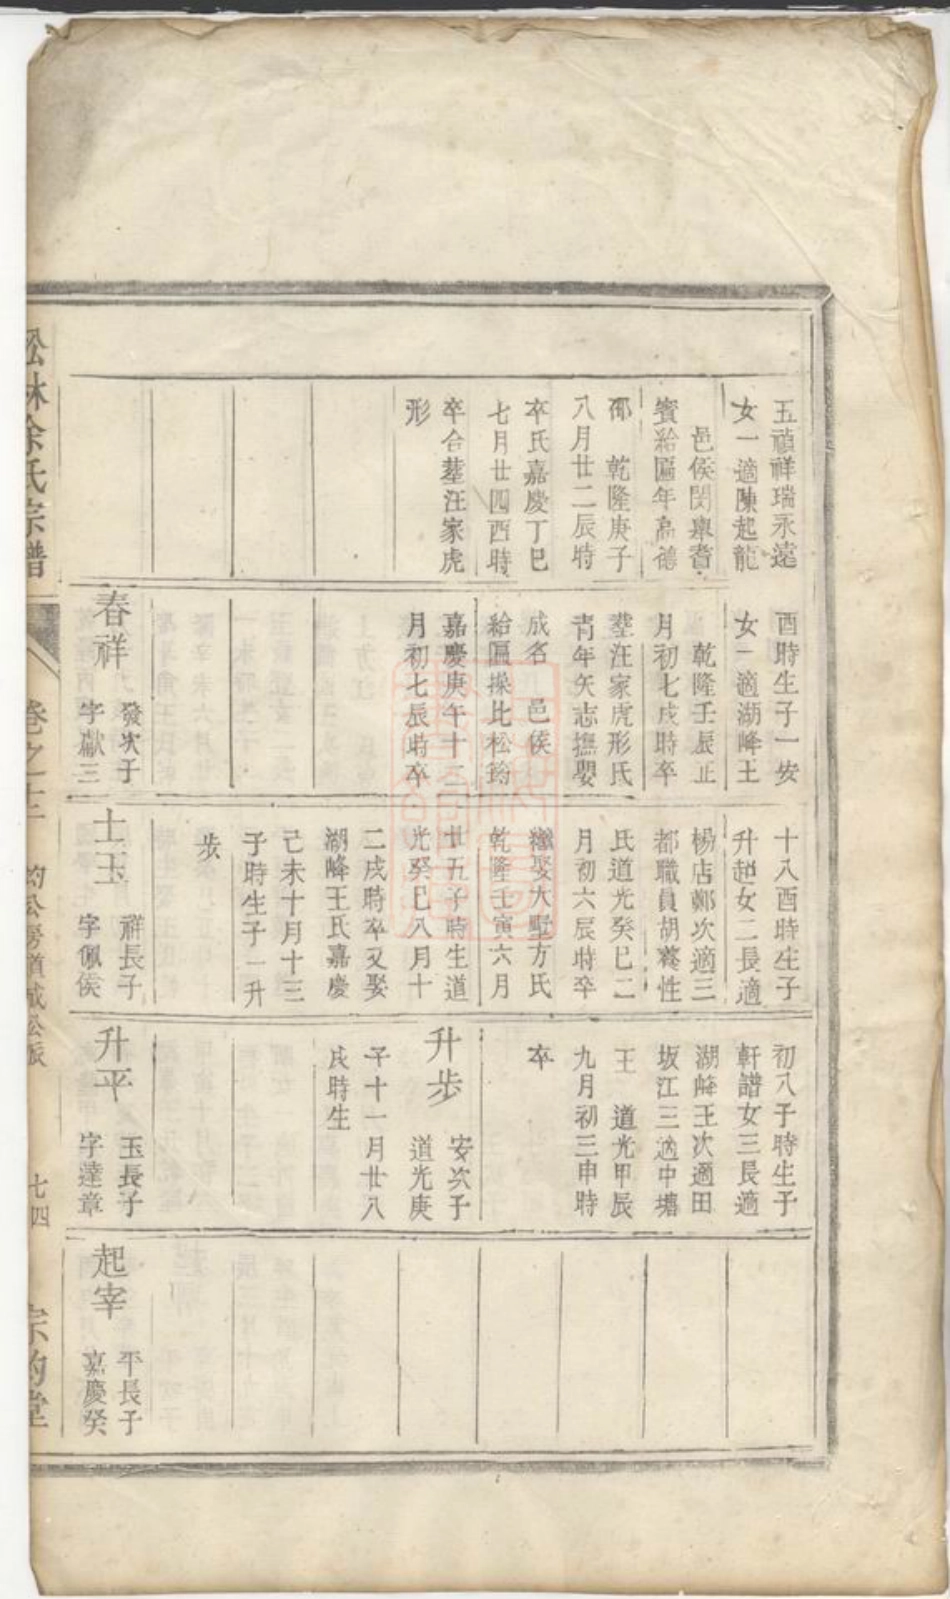 五禎祥瑞永遠
女一適陳起龍
邑侯閔舉耆
賓給匾年高德
邵　乾隆庚子
八月廿二辰時
卒氏嘉慶丁巳
七月廿四酉時
卒合塟汪家虎
形
酉時生子一安
女一適湖峰王
乾隆壬辰正
月初七戌時卒
塟汪家虎形氏
青年矢志撫嬰
成名　邑侯
給匾操比松筠
嘉慶庚午十二
月初七辰時卒
春祥
發次子
字獻三
十八酉時生子
升超女二長適
楊店鄭次適三
都職員胡養性
氏道光癸巳二
月初六辰時卒
繼娶大墅方氏
乾隆壬寅六月
廿五子時生道
光癸巳八月十
二戌時卒又娶
湖峰王氏嘉慶
己未十月十三
子時生子一升
步
士玉
祥長子
字佩侯
初八子時生子
軒譜女三長適
湖峰王次適田
坂江三適中塘
王　道光甲辰
九月初三申時
卒
升步
安次子
道光庚
子十一月廿八
戌時生
升平
玉長子
字達章
起宰
平長子
嘉慶癸
松林余氏宗譜
卷之十二
灼公房道成公派
七四
宗灼堂